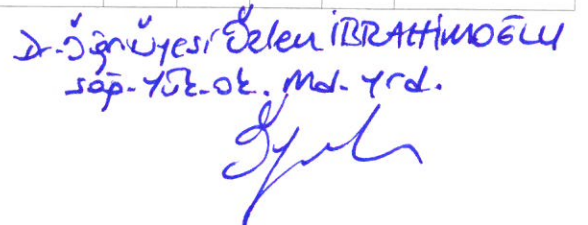 Dr. Öğr. Üyesi Özlen İBRAHİMOĞLU
Sağ. Yük. Ok. Md. Yrd.